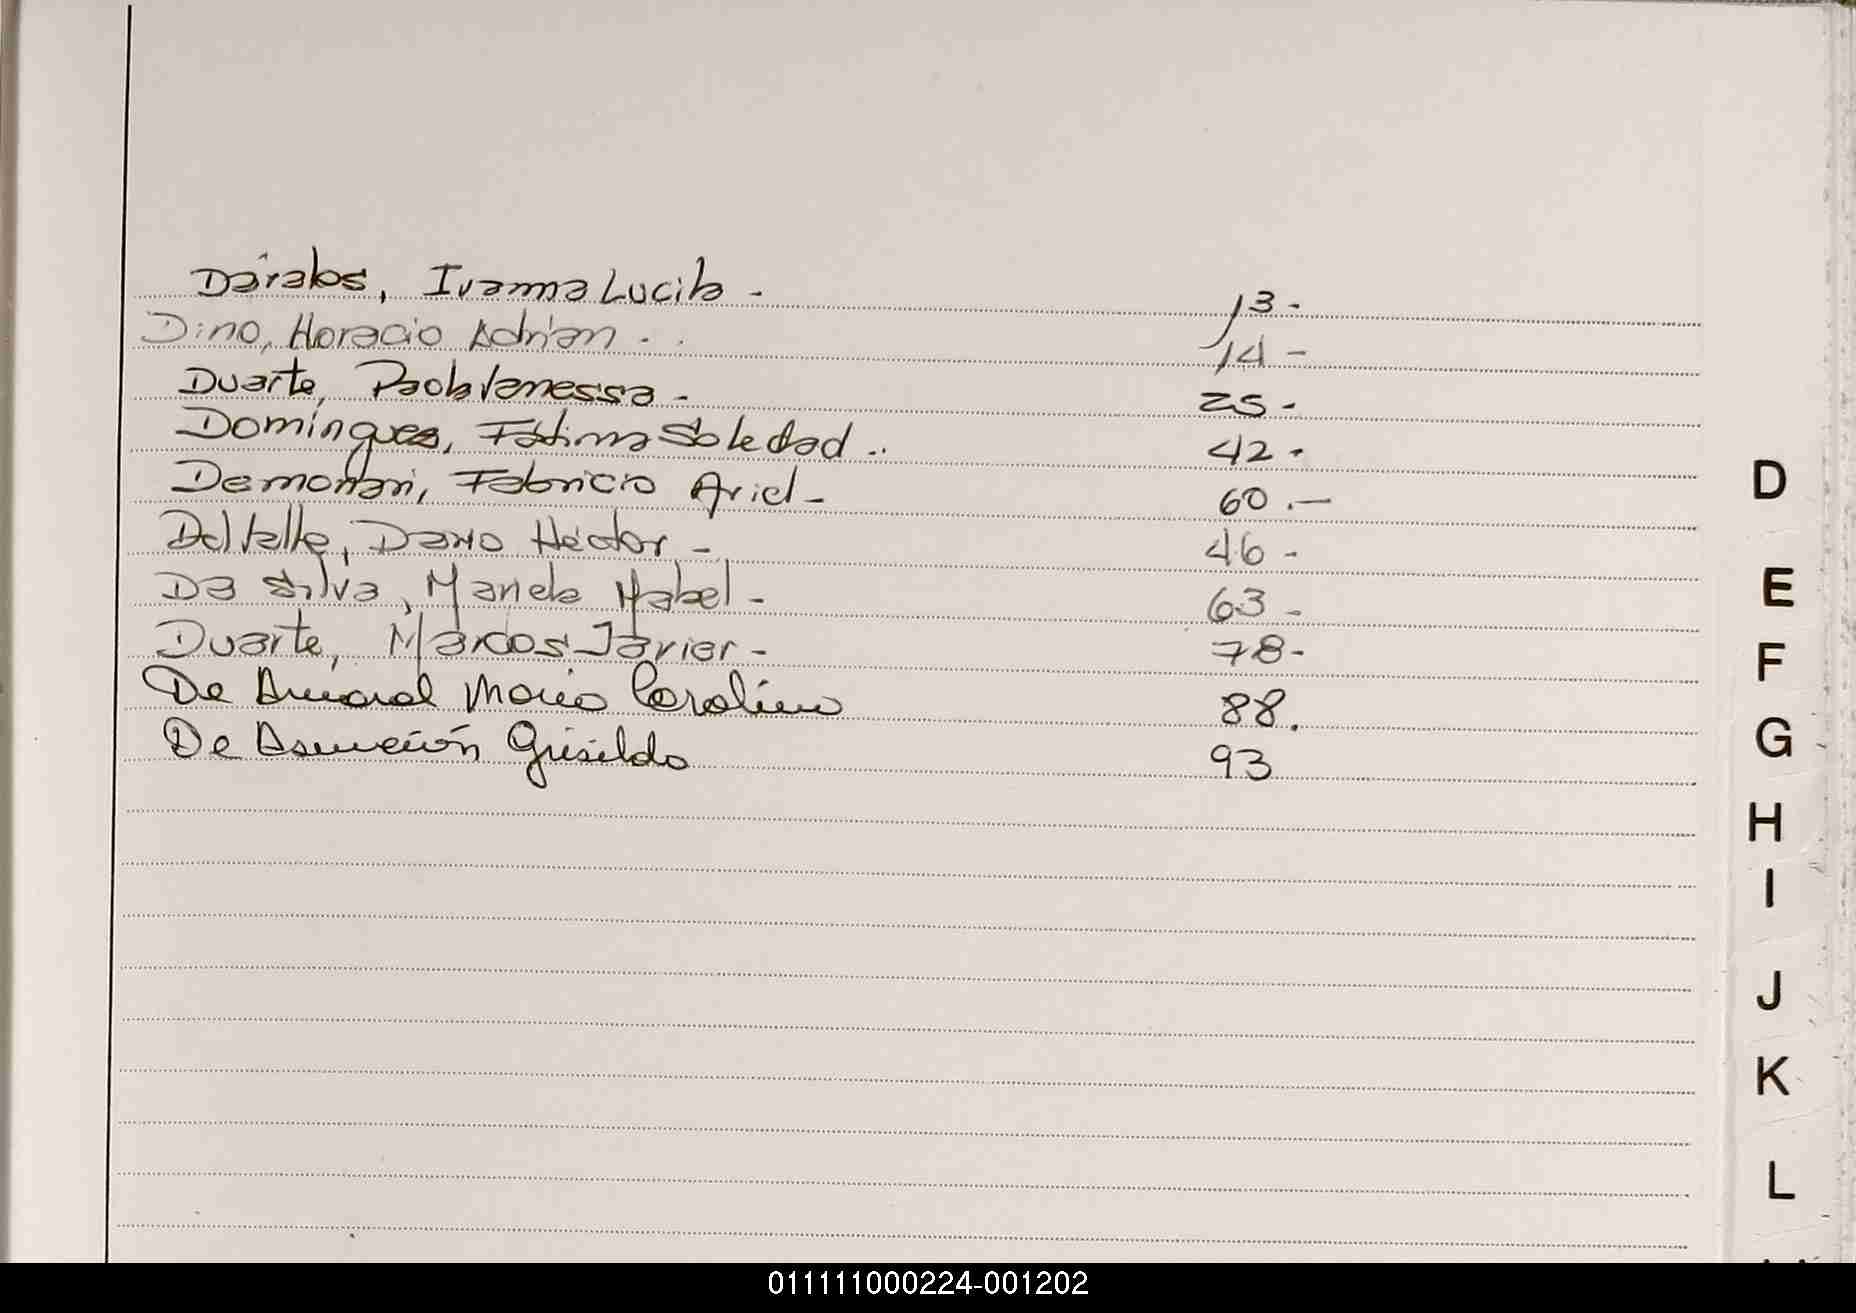 Darabos, Ivanna Lucila - 13-
Dino, Horacio Adrian - . 14 -
Duarte, Paola Vanessa - 25 -
Domíngues, Fátima Soledad .. 42 -
Demonari, Fabricio Ariel - 60 .-
Del Valle, Darío Héctor - 46 -
Da Silva, Mariela Mabel - 63 -
Duarte, Marcos Javier - 78 -
De Amaral Maria Carolina 88.
De Asunción Griselda 93
D
E
F
G
H
I
J
K
L
011111000224-001202